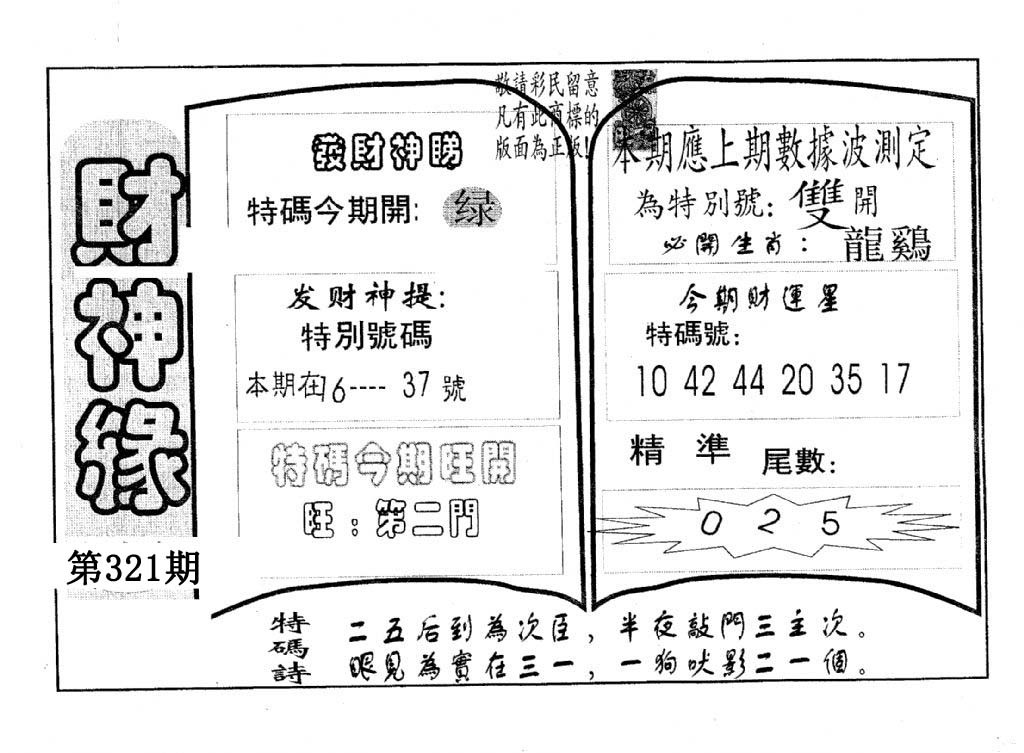 財神緣
第321期
敬請彩民留意
凡有此商標的
版面為正版!
發財神睇
特碼今期開: 绿
发财神提:
特別號碼
本期在6---- 37號
特碼今期旺開
旺:第二門
本期應上期數據波測定
為特別號: 雙開
必開生肖: 龍鷄
今期財運星
特碼號:
10 42 44 20 35 17
精準 尾數:
0 2 5
特碼詩
二五后到為次臣,半夜敲門三主次。
眼見為實在三一,一狗吠影二一個。